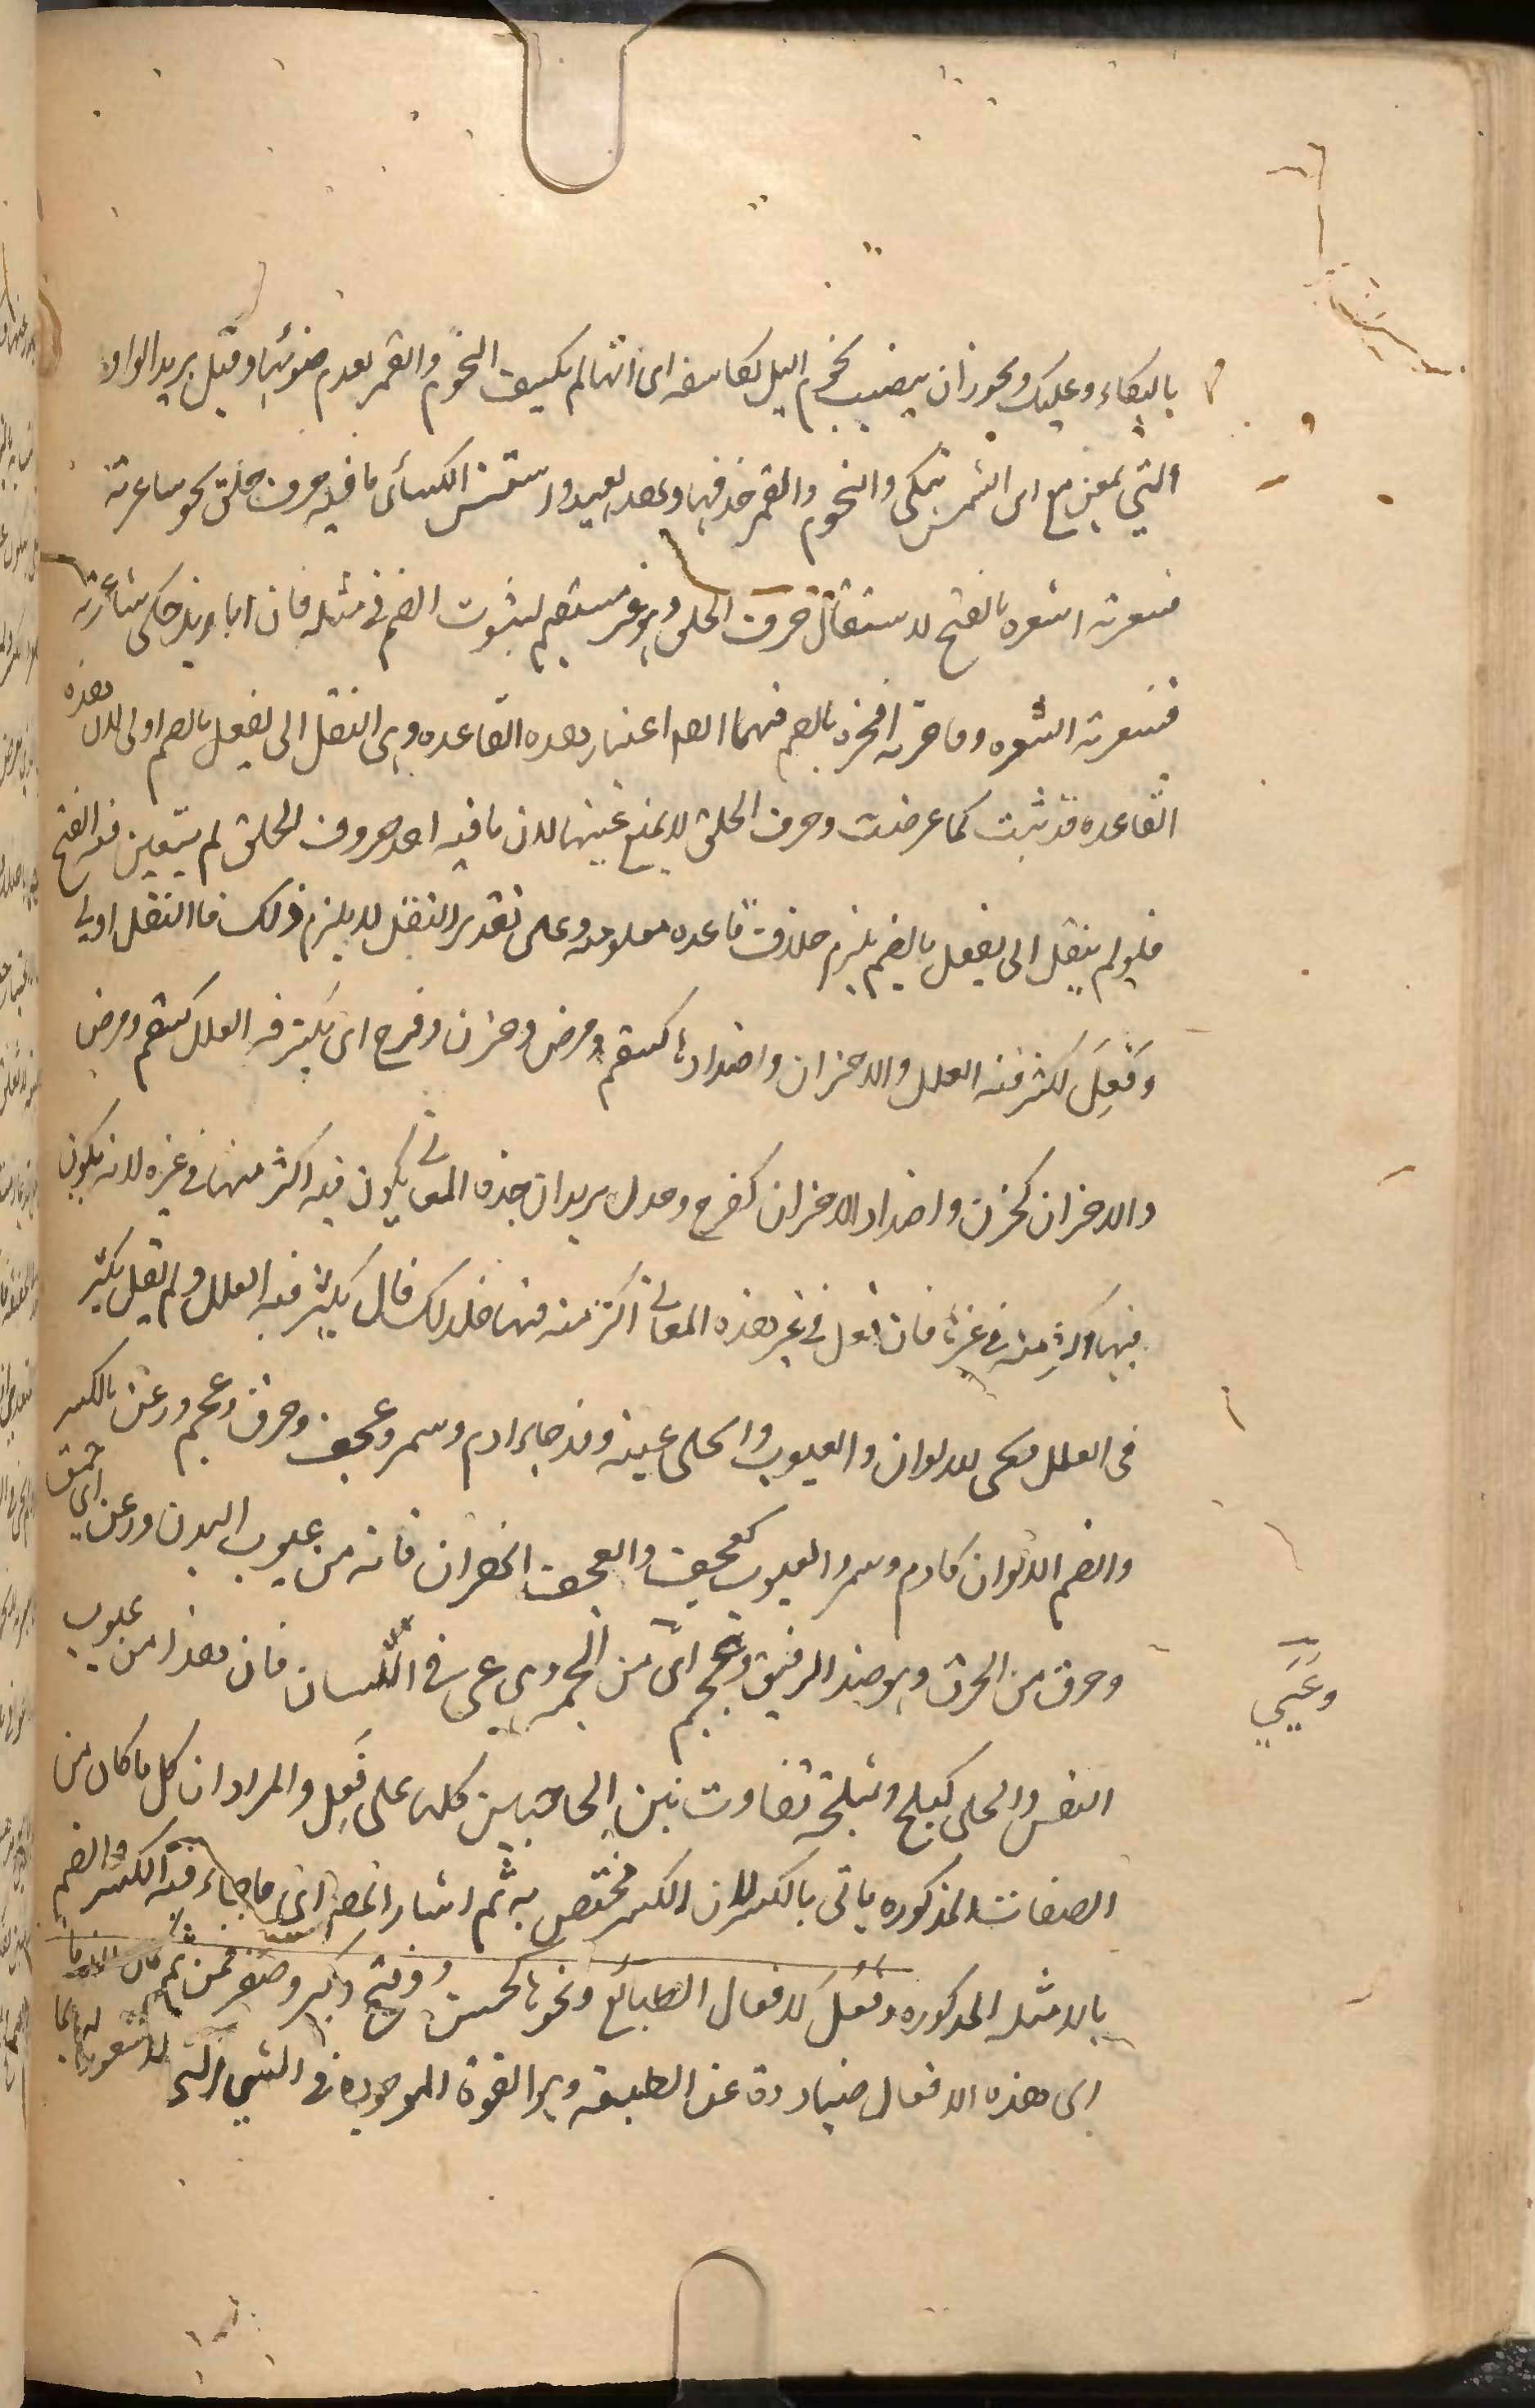 بالبكاء وعليك ويجوز ان ينصب نجوم اليل بكاسفه اى انها لم يكسف النجوم والقمر لعدم ضوئها وقيل يريد الواو
التي بمعنى مع اى الشمس تبكى والنجوم والقمر فحذفها وهذا بعيد واستثنى الكسائى ما فيه حرف حلق نحو شاعرته
فشعرته اشعره بالفتح لاستثقال حرف الحلق وهو غير مستقيم لثبوت الضم فى مثله فان ابا زيد حكى شاعرته
فشعرته اشعره وفاخرته افخره بالضم فيهما اعتبار هذه القاعده وهى النقل الى يفعل بالضم اولى لان هذه
القاعده قد ثبت كما عرفت وحرف الحلق لا يمنع عنها لان ما فيه احد حروف الحلق لم يتعين فيه الفتح
فلو لم ينقل الى يفعل بالضم يلزم خلاف قاعده معلومه وعلى تقدير النقل لا يلزم ذلك فالنقل اولى
وفَعِلَ تكثر فيه العلل والاحزان واضدادها كسقم ومرض وحزن وفرح اى يكثر فيه العلل كسقم ومرض
والاحزان كحزن واضداد الاحزان كفرح وجذل يريد ان هذه المعانى يكون فيه اكثر منها فى غيره لا انه يكون
فيها اكثر منه فى غيرها فان فعل فى غير هذه المعانى اكثر منه فيها فلذلك قال يكثر فيه العلل ولم يقل يكثر
فى العلل ويجى الالوان والعيوب والحلى عليه وقد جاء ادم وسمر وعجف وحمق وخرق وعجم ورعن بالكسر
والضم الالوان كادم وسمر والعيوب كعجف والعجف الهزال فانه من عيوب البدن ورعن اى حمق
وخرق من الخرق وهو ضد الرفق وعجم اى من العجمه وهى عى فى اللسان فان هذا من عيوب
وعَيِيَ
النفس والحلى كبلج وبلجه تفاوت بين الحاجبين كله على فَعِل والمراد ان كل ما كان من
الصفات المذكوره ياتى بالكسر لان الكسر مختص به ثم اشار الى ما جاء فيه الكسر والضم
بالامثله المذكوره وفَعُلَ لافعال الطبائع ونحوها كحسن وقبح وكبر وصغر فمن ثم كان لازما
اى هذه الافعال صادرة عن الطبيعه وهو القوة الموجوده فى الشيء التى لا شعور لها بما